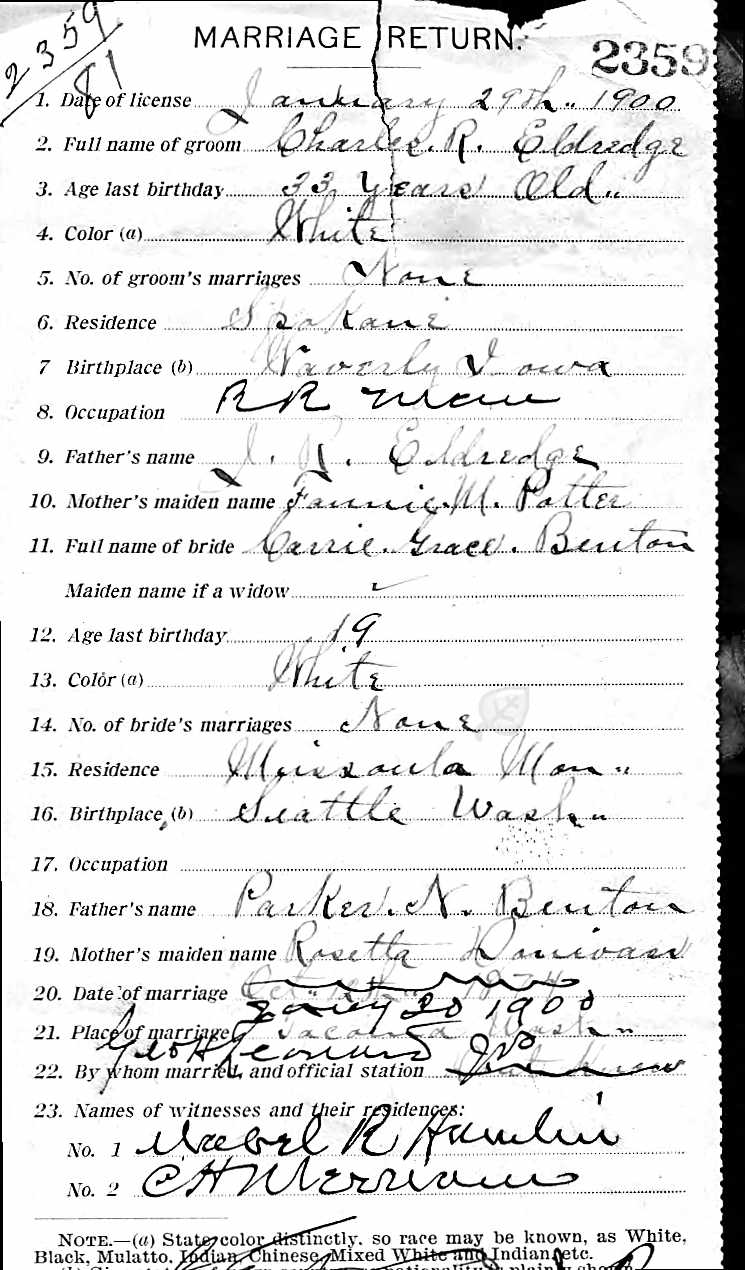 2359
81
MARRIAGE RETURN.
2359
1. Date of license January 29th 1900
2. Full name of groom Charles. R. Eldredge
3. Age last birthday 33 Years Old
4. Color (a) White
5. No. of groom's marriages None
6. Residence Spokane
7 Birthplace (b) Waverly Iowa
8. Occupation RR man
9. Father's name J. R. Eldredge
10. Mother's maiden name Fannie. M. Potter
11. Full name of bride Carrie. Grace. Benton
Maiden name if a widow
12. Age last birthday 19
13. Color (a) White
14. No. of bride's marriages None
15. Residence Missoula Mon
16. Birthplace, (b) Seattle Wash
17. Occupation
18. Father's name Parker. N. Benton
19. Mother's maiden name Rosetta
20. Date of marriage
30 1900
21. Place of marriage Tacoma Wash
Geo H Leonard J.P.
22. By whom married, and official station
23. Names of witnesses and their residences:
No. 1 Mabel R Hamlin
No. 2 C H Merriam
NOTE.—(a) State color distinctly, so race may be known, as White,
Black, Mulatto, Indian, Chinese, Mixed White and Indian, etc.